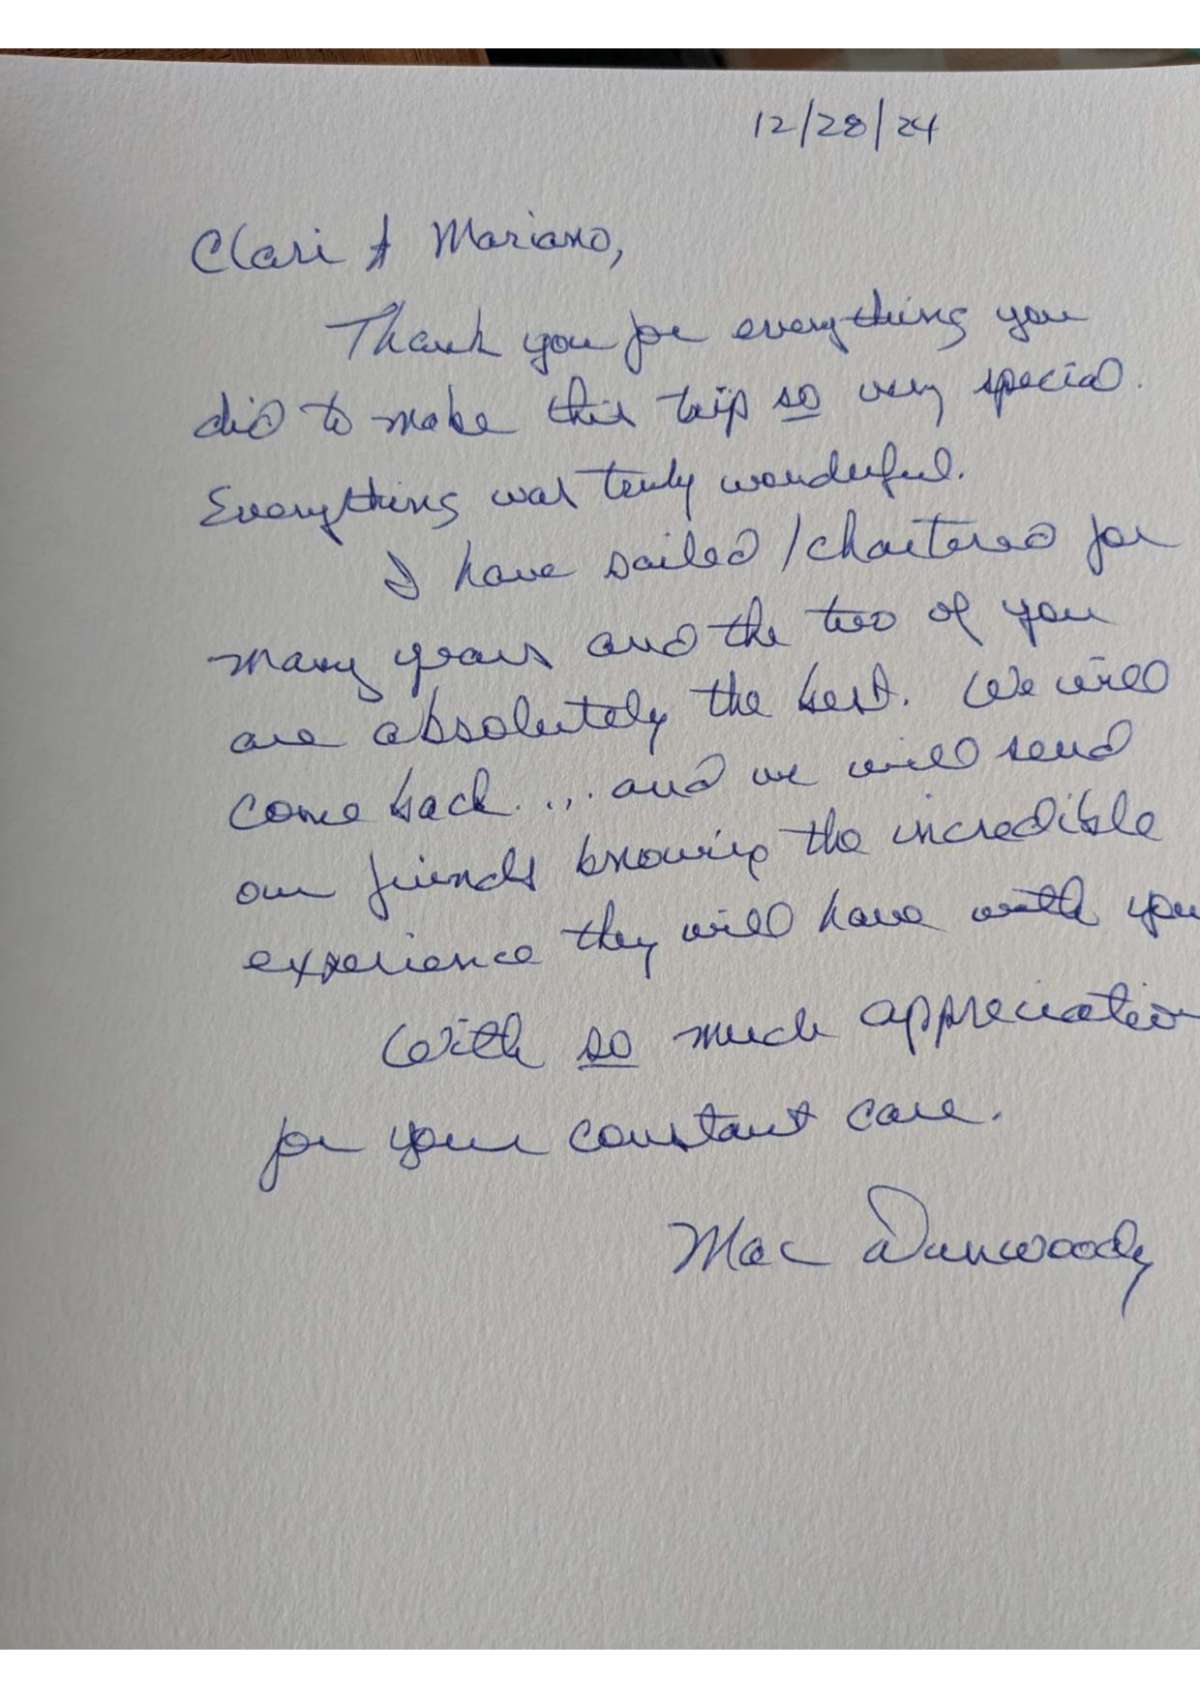 12/28/24
Clari & Mariano,
Thank you for everything you
did to make this trip so very special.
Everything was truly wonderful.
I have sailed/chartered for
many years and the two of you
are absolutely the best. We will
come back.... and we will send
our friends knowing the incredible
experience they will have with you
With so much appreciation
for your constant care.
Mac Dunwoody